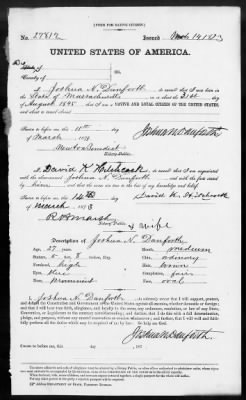 [FORM FOR NATIVE CITIZEN.]
No. 27812 Issued Mch 14 1873
UNITED STATES OF AMERICA.
State of
County of
ss.
I, Joshua N. Danforth, do swear that I was born in the
State of Massachusetts on or about the 31st day
of August 1845; that I am a NATIVE AND LOYAL CITIZEN OF THE UNITED STATES,
and about to travel abroad.
Sworn to before me this 11th day
of March 1873
Joshua N Danforth
Notary Public.
I, David K. Hitchcock, do swear that I am acquainted
with the above-named Joshua N. Danforth and with the facts above stated by
him, and that the same are true to the best of my knowledge and belief.
Sworn to before me this 14th day
of March 1873
David K. Hitchcock
R H Marsh
Notary Public.
& wife
Description of Joshua N. Danforth
Age, 27 Mouth, medium
Stature, 5 ft 8 inches, Eng. Chin, ordinary
Forehead, high Hair, brown
Eyes, blue Complexion, fair
Nose, prominent Face, oval
I, Joshua N. Danforth do solemnly swear that I will support, protect,
and defend the Constitution and Government of the United States against all enemies, whether domestic or foreign; and
that I will bear true faith, allegiance, and loyalty to the same, any ordinance, resolution, or law of any State,
Convention, or Legislature to the contrary notwithstanding; and further, that I do this with a full determination,
pledge, and purpose, without any mental reservation or evasion whatsoever; and further, that I will well and faith-
fully perform all the duties which may be required of me by law: So help me God.
Joshua N Danforth
Sworn to before me, this day
of , 187